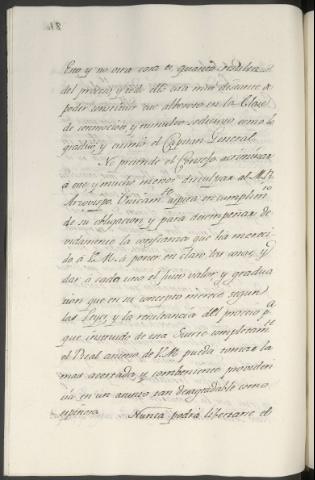 Esto y no otra cosa es quanto resulta
del proceso, y todo ello está mui distante de
poder constituir ese alboroto en la Clase
de conmocion, y tumulto sedicioso, como lo
graduó, y animó el Capitan General.
No pretende el Consejo acriminar
á este, y mucho menos disculpar al M. R.
Arzovispo. Unicamte aspira en cumplimto
de su obligacion y para desempeñar de
vidamente la confianza que ha mereci
do á V.M. á poner en claro las cosas, y
dar á cada una el justo valor y gradua
cion que en su concepto merece segun
las Leyes, y la resultancia del proceso pa
que instruido de esa suerte completamte
el Real animo de V.M. pueda tomar la
mas acertada, y combeniente providen
cia en un asunto tan desagradable como
espinoso. Nunca podrá libertarse el